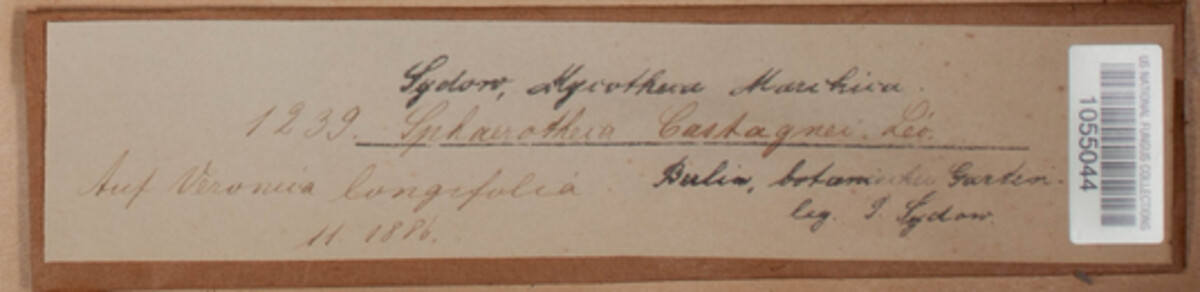 Sydow, Mycotheca Marchica.
1239. Sphaerotheca Castagnei Lév.
Auf Veronica longifolia
11. 1886.
Berlin, botanischer Garten.
leg. P. Sydow.
US NATIONAL FUNGUS COLLECTIONS
1055044